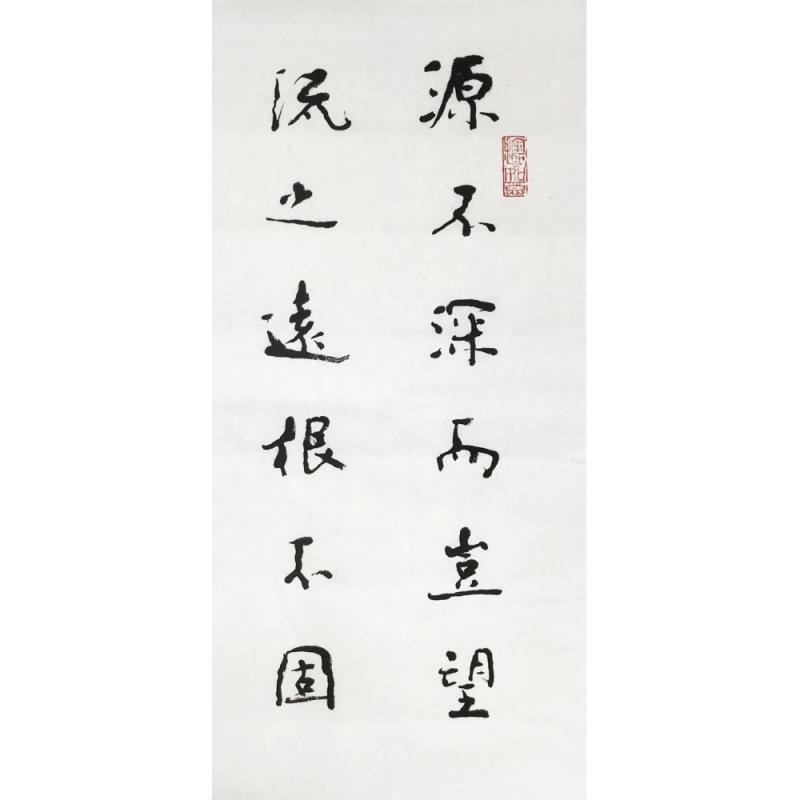 源不深而豈望
流之遠根不固